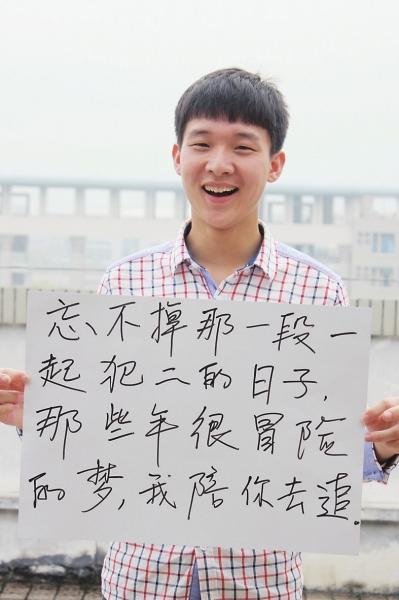 忘不掉那一段一
起犯二的日子,
那些年很冒险
的梦,我陪你去追.